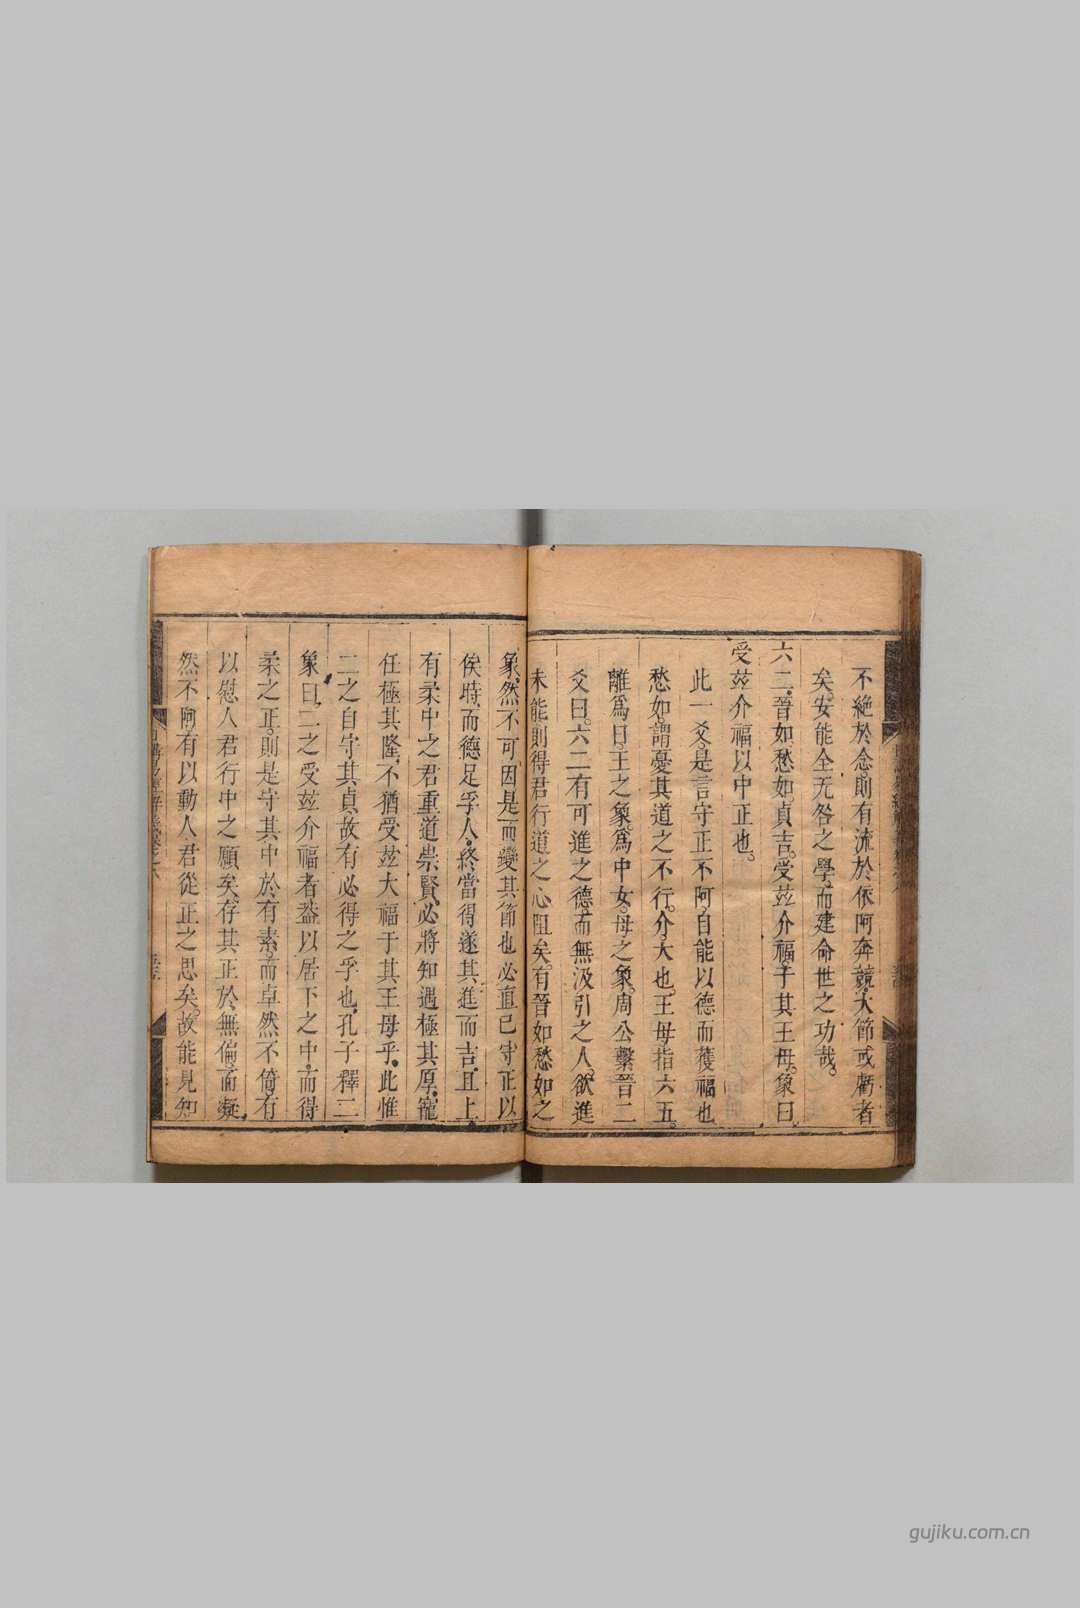 不絶於念則有流於依阿奔競大節或虧者
矣安能全无咎之學而建命世之功哉
六二晉如愁如貞吉受玆介福于其王母象曰
受玆介福以中正也
此一爻是言守正不阿自能以德而獲福也
愁如謂憂其道之不行介大也王母指六五
離爲日王之象爲中女母之象周公繫晉二
爻曰六二有可進之德而無汲引之人欲進
未能則得君行道之心阻矣有晉如愁如之
象然不可因是而變其節也必直已守正以
俟時而德足孚人終當得遂其進而吉且上
有柔中之君重道崇賢必將知遇極其原寵
任極其隆不猶受玆大福于其王母乎此惟
二之自守其貞故有必得之孚也孔子釋二
象曰二之受玆介福者葢以居下之中而得
柔之正則是守其中於有素而卓然不倚有
以慰人君行中之願矣存其正於無偏而凝
然不阿有以動人君從正之思矣故能見知
gujiku.com.cn